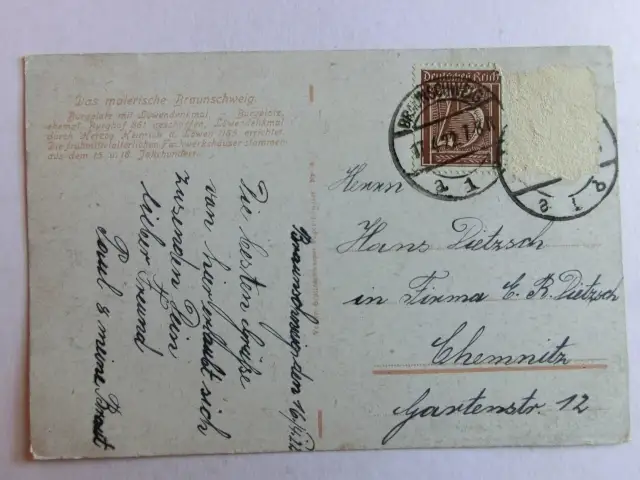 Das malerische Braunschweig.
Burgplatz mit Löwendenkmal u. Burgplatz,
ehemal. Burghof 961 geschaffen, Löwendenkmal
durch Herzog Heinrich d. Löwen 1166 errichtet.
Die frühmittelalterlichen Fachwerkshäuser stammen
aus dem 15. u. 16. Jahrhundert.
Braunschweig den 16.
Die besten Grüße
von hier erlaubt sich
zuzusenden Dein
lieber Freund
Paul & meine Braut
Deutsches Reich
75
BRAUNSCHWEIG
a 1
a 1
Herrn
Hans Dietzsch
in Firma C. R. Dietzsch
Chemnitz
Gartenstr. 12